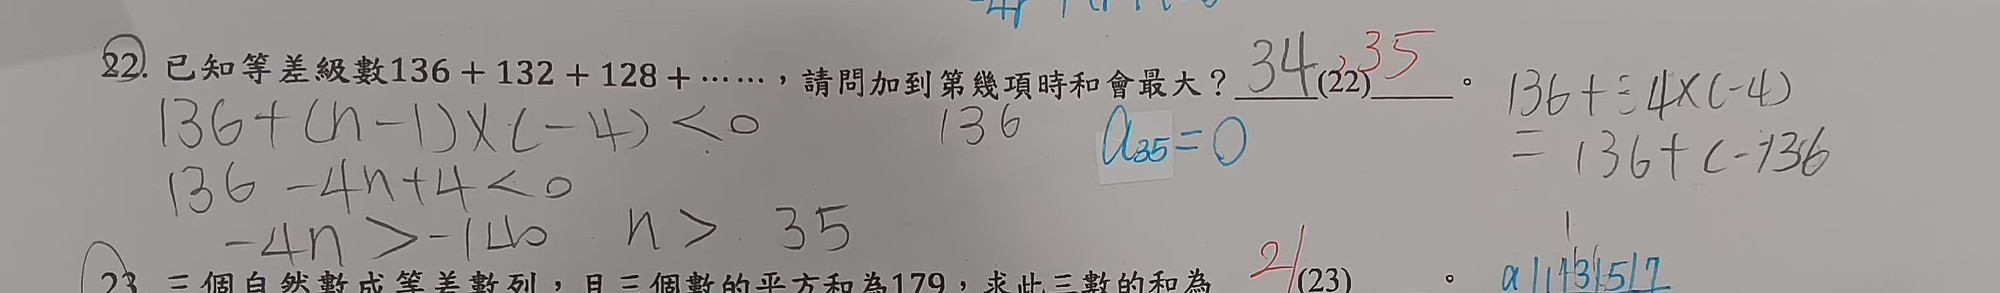 22. 已知等差級數136 + 132 + 128 + ⋯⋯，請問加到第幾項時和會最大？ 34 (22) 35 。
136+(n-1)×(-4)<0
136
a35=0
136+ 4×(-4)
= 136+(-136
136-4n+4<0
-4n>-140 n> 35
23. 三個自然數成等差數列，且三個數的平方和為179，求此三數的和為 21 (23) 。